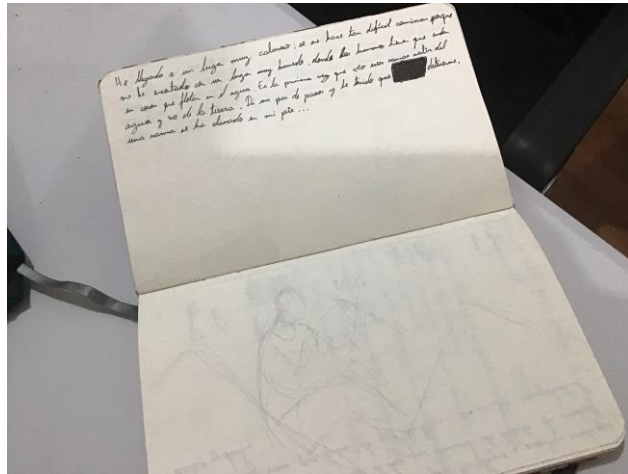 He llegado a un lugar muy caluroso; se me hace tan difícil caminar porque
me he encontrado con un lugar muy húmedo, donde los humanos tienen que andar
en cosas que flotan en el agua. Es la primera vez que veo unas ramas salir del
agua y no de la tierra. Di un par de pasos y he tenido que detenerme,
una rama se ha clavado en mi pie...